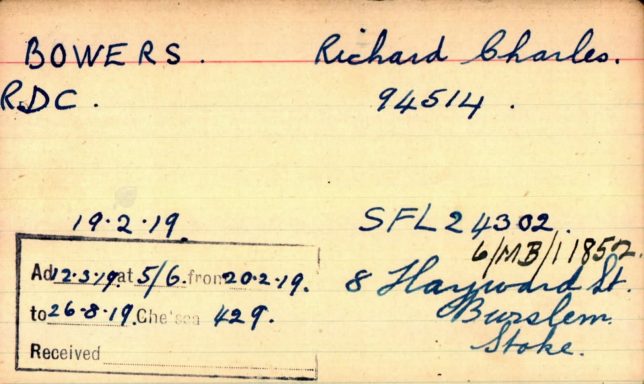 BOWERS. Richard Charles.
RDC. 94514.
19.2.19. SFL24302.
6/MB/11852.
Ad 12.3.19. at 5/6. from 20.2.19.
8 Hayward St.
to 26-8-19. Chelsea 429.
Burslem.
Received
Stoke.